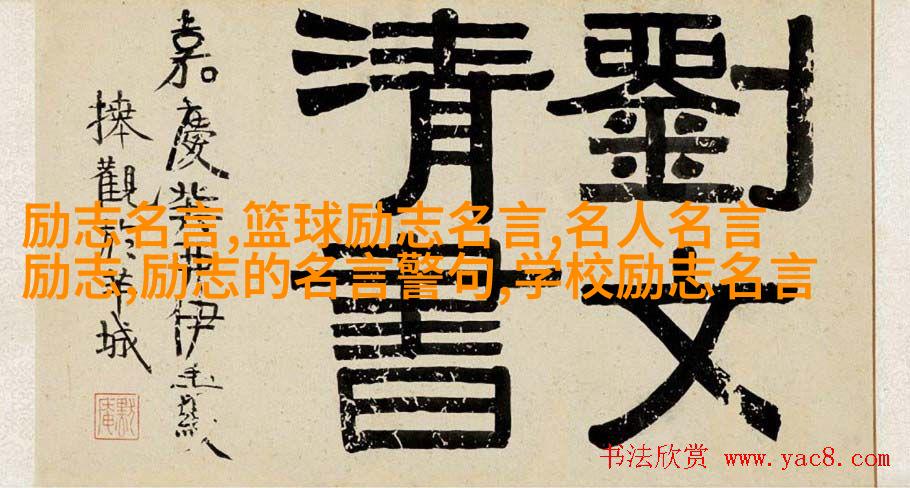 劉文
清書
嘉慶伊秉綬
捧觀於城
默庵
励志名言,篮球励志名言,名人名言
励志,励志的名言警句,学校励志名言
书法欣赏 www.yac8.com